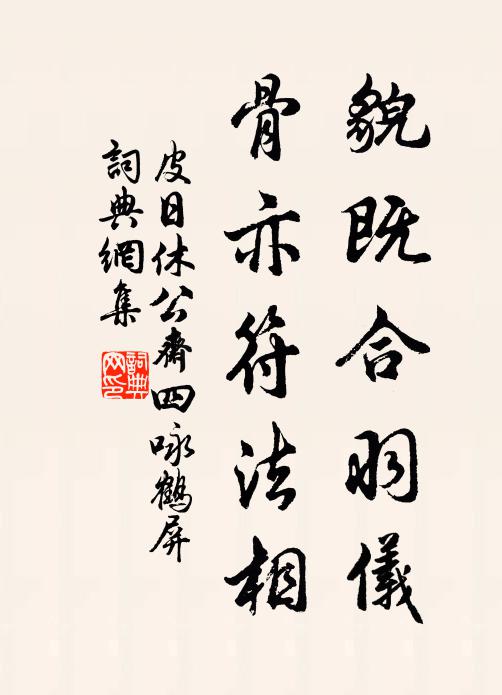 貌既合羽儀
骨亦符法相
皮日休公齋四咏鶴屏
詞典網集
詞典
网印